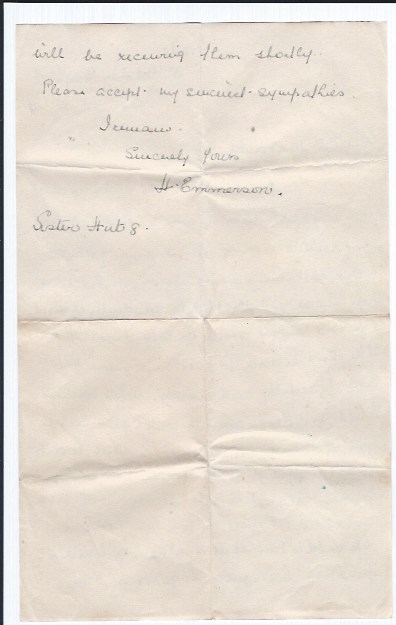 will be receiving them shortly.
Please accept my sincerest sympathies.
I remain.
Sincerely Yours
H. Emmerson.
Sister Hut 8.